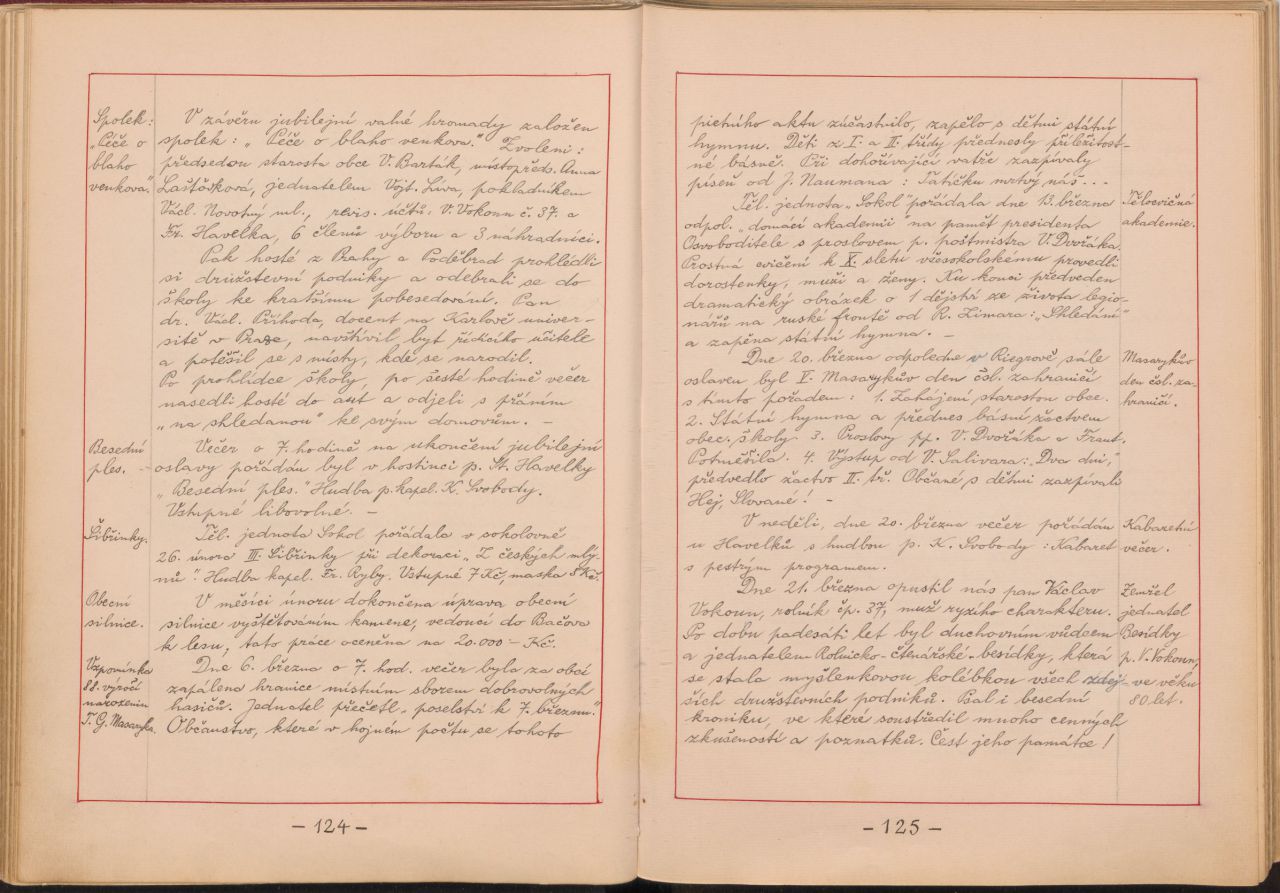 Spolek:
„Péče o
blaho
venkova."
V závěru jubilejní valné hromady založen
spolek: „Péče o blaho venkova." Zvoleni:
předsedou starosta obce V. Barták, místopřed. Anna
Laštovková, jednatelem Vojt. Líva, pokladníkem
Václ. Novotný ml., revis. účtů: V. Vokoun č. 37. a
Fr. Havelka, 6 členů výboru a 3 náhradníci.
Pak hosté z Prahy a Poděbrad prohlédli
si družstevní podniky a odebrali se do
školy ke kratšímu pobesedování. Pan
dr. Václ. Příhoda, docent na Karlově univer-
sitě v Praze, navštívil byt řídícího učitele
a potěšil se s místy, kde se narodil.
Po prohlídce školy, po šesté hodině večer
nasedli hosté do aut a odjeli s přáním
„na shledanou" ke svým domovům. –
Besední
ples. –
Večer o 7. hodině na ukončení jubilejní
oslavy pořádán byl v hostinci p. St. Havelky
„Besední ples." Hudba p. kapel. K. Svobody.
Vstupné libovolné. –
Šibřinky.
Těl. jednota Sokol pořádala v sokolovně
26. února III. Šibřinky při dekoraci „Z českých mlý-
nů". Hudba kapel. Fr. Ryby. Vstupné 7 Kč, maska 5 Kč.
Obecní
silnice.
V měsíci únoru dokončena úprava obecní
silnice vyštětováním kamene, vedoucí do Bačova
k lesu, tato práce oceněna na 20.000 – Kč.
Vzpomínka
88. výročí
narozenin
T. G. Masaryka.
Dne 6. března o 7. hod. večer byla za obcí
zapálena hranice místním sborem dobrovolných
hasičů. Jednatel přečetl „poselství k 7. březnu."
Občanstvo, které v hojném počtu se tohoto
– 124 –
pietního aktu zúčastnilo, zapělo s dětmi státní
hymnu. Děti z I. a II. třídy přednesly příležitost-
né básně. Při dohořívající vatře zazpívaly
píseň od J. Naumana: Tatíčku mrtvý náš...
Tělocvičná
akademie.
Těl. jednota „Sokol" pořádala dne 13. března
odpol. „domácí akademii" na paměť presidenta
Osvoboditele s proslovem p. poštmistra V. Dvořáka.
Prostná cvičení k X. sletu všesokolskému provedli
dorostenky, muži a ženy. Ku konci předveden
dramatický obrázek o 1 dějství ze života legio-
nářů na ruské frontě od R. Zimara: „Shledání"
a zapěna státní hymna. –
Masarykův
den čsl. za-
hraničí.
Dne 20. března odpoledne v Riegrově sále
oslaven byl V. Masarykův den čsl. zahraničí
s tímto pořadem: 1. Zahájení starostou obce.
2. Státní hymna a přednes básní žactvem
obec. školy. 3. Proslovy pp. V. Dvořáka a Frant.
Potměšila. 4. Výstup od V. Salivara: „Dva dni,"
předvedlo žactvo II. tř. Občané s dětmi zazpívali
Hej, Slované! –
Kabaretní
večer.
V neděli, dne 20. března večer pořádán
u Havelků s hudbou p. K. Svobody: Kabaret
s pestrým programem.
Zemřel
jednatel
Besídky
p. V. Vokoun,
ve věku
80 let.
Dne 21. března opustil nás pan Václav
Vokoun, rolník čp. 37, muž ryzího charakteru.
Po dobu padesáti let byl duchovním vůdcem
a jednatelem Rolnicko-čtenářské-besídky, která
se stala myšlenkovou kolébkou všech zdej-
ších družstevních podniků. Psal i besední
kroniku, ve které soustředil mnoho cenných
zkušeností a poznatků. Čest jeho památce!
– 125 –